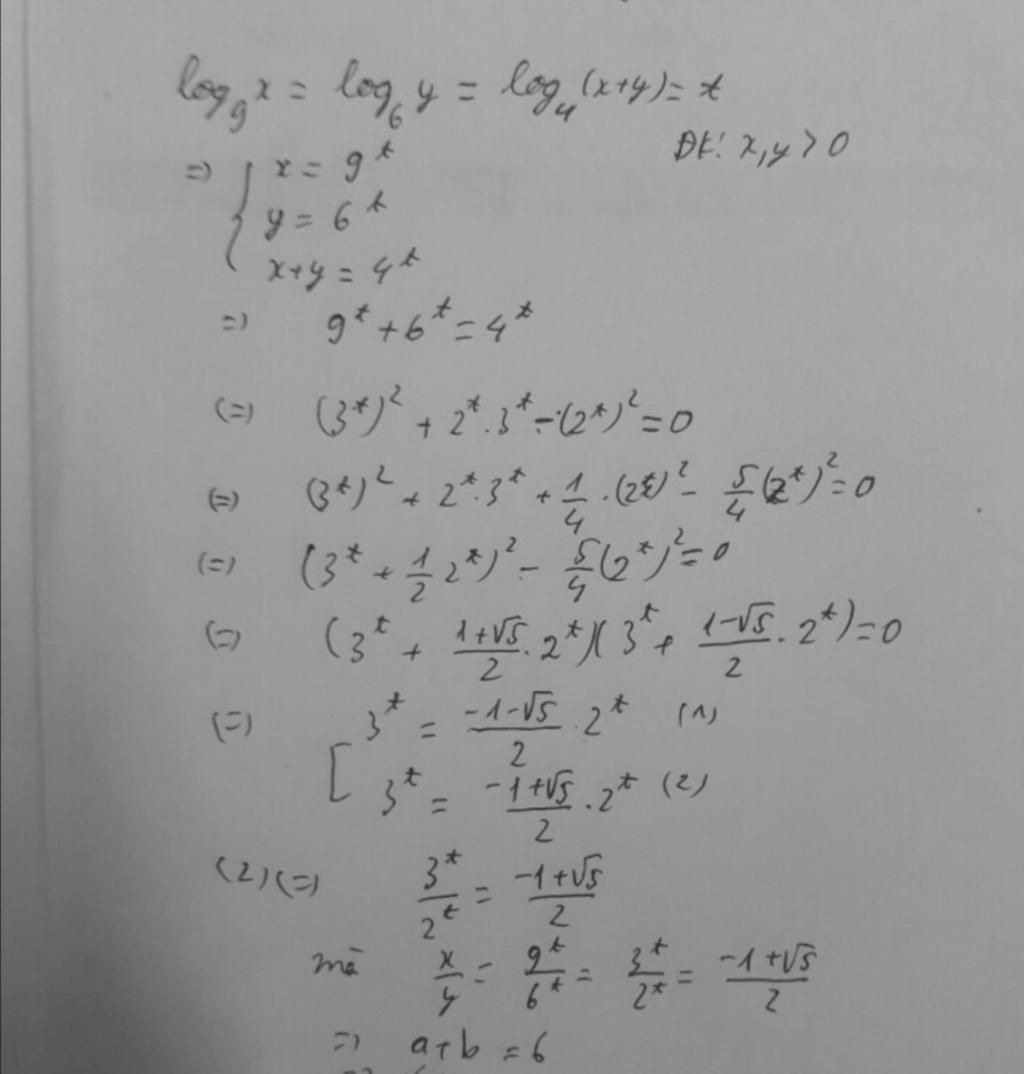 log₉x = log₆y = log₄(x+y) = t
ĐK: x,y > 0
=> { x = 9^t
y = 6^t
x+y = 4^t
=> 9^t + 6^t = 4^t
(=) (3^t)² + 2^t.3^t - (2^t)² = 0
(=) (3^t)² + 2^t.3^t + 1/4.(2^t)² - 5/4(2^t)² = 0
(=) (3^t + 1/2 2^t)² - 5/4(2^t)² = 0
(=) (3^t + (1+√5)/2.2^t)(3^t + (1-√5)/2.2^t) = 0
(=) [ 3^t = (-1-√5)/2.2^t (1)
3^t = (-1+√5)/2.2^t (2)
(2) (=) 3^t/2^t = (-1+√5)/2
mà x/y = 9^t/6^t = 3^t/2^t = (-1+√5)/2
=> a+b = 6